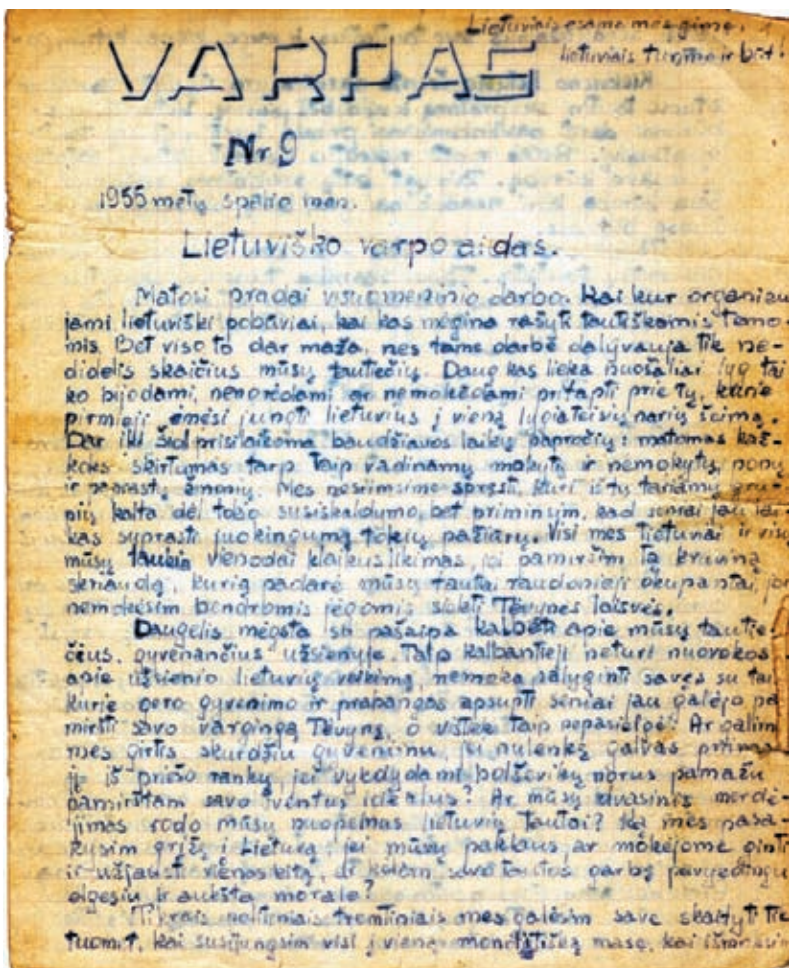 Lietuviais esame mes gimę,
lietuviais turime ir būt!
VARPAS
Nr 9
1955 metų spalio mėn.
Lietuviško varpo aidas.
Matosi pradai visuomeninio darbo. Kai kur organizuo
jami lietuviški pobūviai, kai kas mėgina rašyti tautiškomis temo-
mis. Bet viso to dar maža, nes tame darbe dalyvauja tik ne-
didelis skaičius mūsų tautiečių. Daug kas lieka nuošaliai lyg tai
ko bijodami, nenorėdami ar nemokėdami pritapti prie tų, kurie
pirmieji ėmėsi jungti lietuvius į vieną lygiateisių narių šeimą.
Dar iki šiol prisilaikoma baudžiavos laikų papročių: matomas kaž-
koks skirtumas tarp taip vadinamų mokytų ir nemokytų, ponų
ir paprastų žmonių. Mes nesiimsime spręsti, kuri iš tų tariamų gru-
pių kalta dėl tokio susiskaldymo, bet priminsym, kad seniai jau lai-
kas suprasti juokingumą tokių pažiūrų. Visi mes lietuviai ir visų
mūsų laukia vienodai klaikus likimas, jei pamiršim tą kruviną
skriaudą, kurią padarė mūsų tautai raudonieji okupantai, jei
nemokėsim bendromis jėgomis siekti Tėvynės laisvės.
Daugelis mėgsta su pašaipa kalbėti apie mūsų tautie-
čius, gyvenančius užsienyje. Taip kalbantieji neturi nuovokos
apie užsienio lietuvių veikimą, nemoka palyginti savęs su tais,
kurie gero gyvenimo ir prabangos apsupti seniai jau galėjo pa
miršti savo vargingą Tėvynę, o vistiek taip nepasielgė. Ar galim
mes girtis skurdžiu gyvenimu, jei nulenkę galvas priimam
jį iš priešo rankų, jei vykdydami bolševikų norus pamažu
pamirštam savo šventus idealus? Ar mūsų dvasinis merdė-
jimas rodo mūsų nuopelnus lietuvių tautai? Ką mes pasa-
kysim grįžę į Lietuvą, jei mūsų paklaus, ar mokėjome ginti
ir užjausti vienas kitą, ar kėlėm savo tautos garbę pavyzdingu
elgesiu ir aukšta morale?
Tikrais politiniais tremtiniais mes galėsim save skaityti tik
tuomet, kai susijungsim visi į vieną monolitišką masę, kai